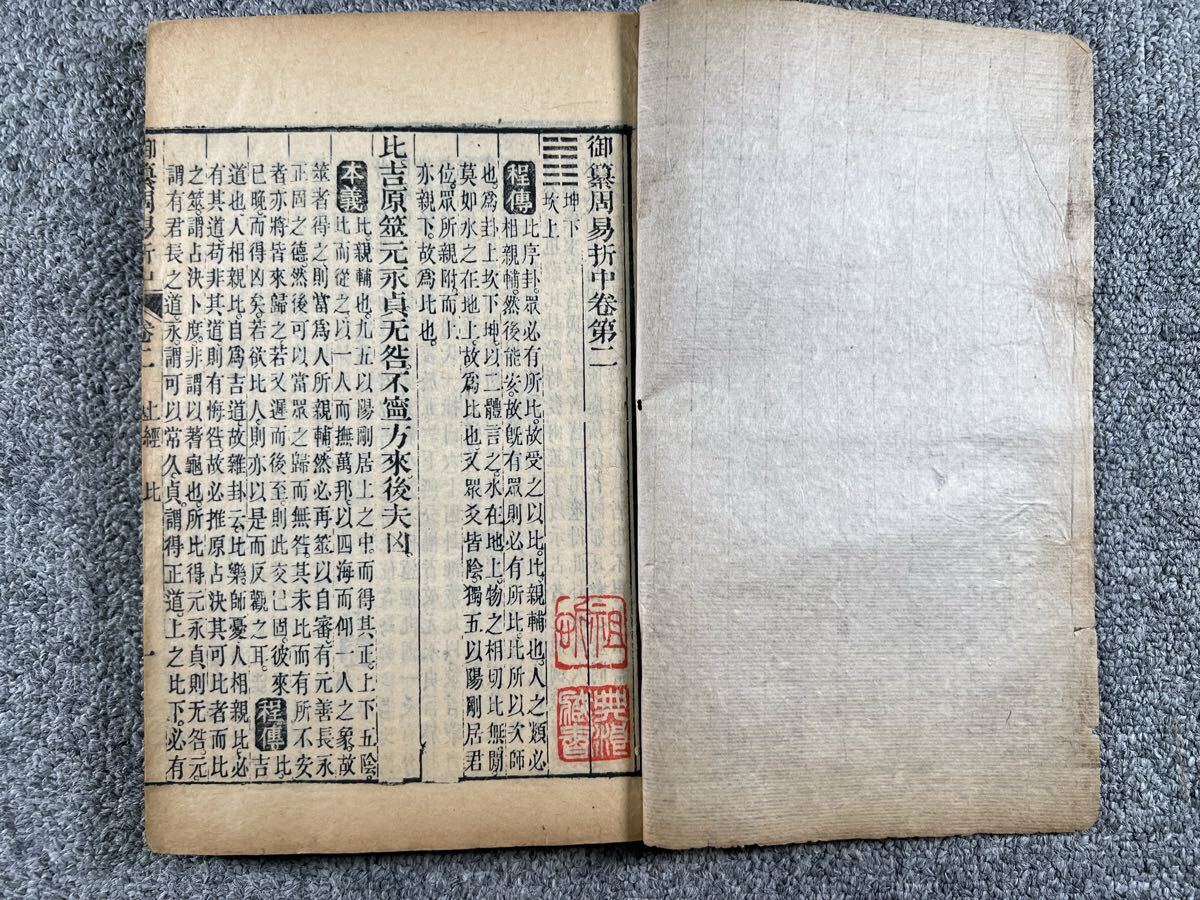 御纂周易折中卷第二
坤下
坎上
程傳 比序卦。眾必有所比。故受之以比。比、親輔也。人之類必
相親輔。然後能安。故既有眾則必有所比。比所以次師
也。爲卦上坎下坤。以二體言之。水在地上。物之相切比無閒
莫如水之在地上。故爲比也又眾爻皆陰。獨五以陽剛居君
位。眾所親附。而上
亦親下。故爲比也。
比吉原筮元永貞无咎。不寧方來。後夫凶。
本義 比親輔也。九五以陽剛居上之中。而得其正。上下五陰。
比而從之。以一人而撫萬邦。以四海而仰一人之象。故
筮者得之。則當爲人所親輔。然必再筮以自審。有元善長永
正固之德。然後可以當眾之歸而無咎。其未比而有所不安
者亦將皆來歸之。若又遲而後至。則此交已固。彼來
已晚。而得凶矣。若欲比人。則亦以是而反觀之耳。
程傳 比
吉
道也人相親比。自爲吉道。故雜卦云。比樂師憂。人相親比。必
有其道。苟非其道。則有悔咎。故必推原占決其可比者而比
之。筮謂占決卜度。非謂以蓍龜也。所比得元永貞。則无咎。元
謂有君長之道。永謂可以常久。貞謂得正道。上之比下。必有
御纂周易折中 卷二 上經 比 一
藏書